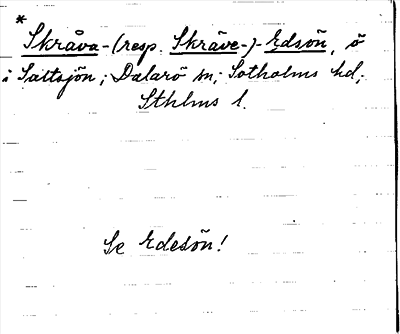 *
Skråva- (resp. Skräve-)- Edsön, ö
i Saltsjön; Dalarö sn; Sotholms hd;
Sthlms l.
Se Edesön!